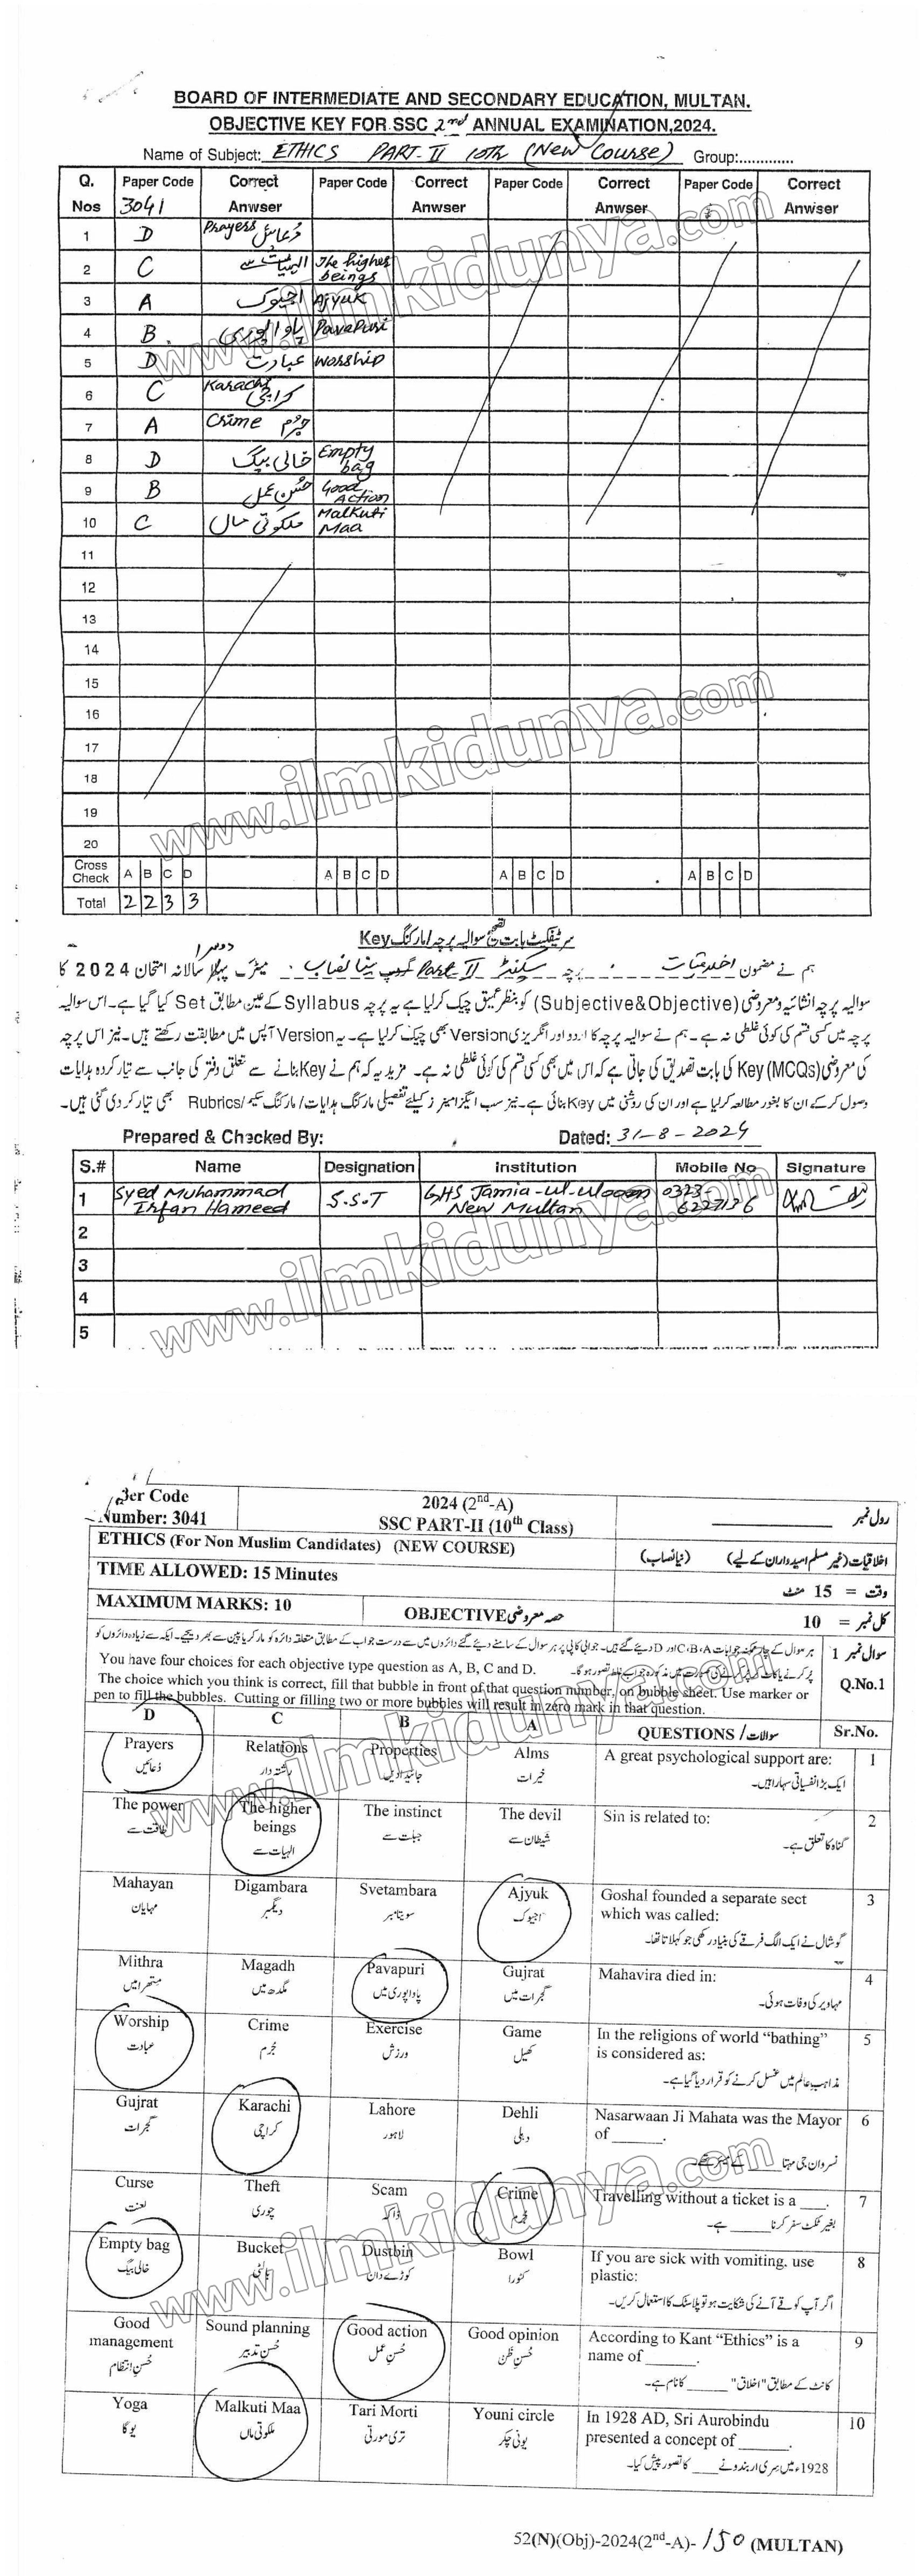 BOARD OF INTERMEDIATE AND SECONDARY EDUCATION, MULTAN.
OBJECTIVE KEY FOR SSC 2nd ANNUAL EXAMINATION,2024.
Name of Subject: ETHICS PART-II 10th (New Course) Group:.............
Q. Nos Paper Code Correct Anwser Paper Code Correct Anwser Paper Code Correct Anwser Paper Code Correct Anwser
3041
1 D Prayers دُعائیں
2 C الہیات سے The higher beings
3 A اجیوک Ajyuk
4 B پاواپوری Pavapuri
5 D عبادت Worship
6 C Karachi کراچی
7 A Crime جرُم
8 D خالی بیگ Empty bag
9 B حسُنِ عمل Good Action
10 C ملکوتی ماں Malkuti Maa
11
12
13
14
15
16
17
18
19
20
Cross Check A B C D A B C D A B C D A B C D
Total 2 2 3 3
سرٹیفکیٹ بابت تصحیح سوالیہ پرچہ/مارکنگ Key
ہم نے مضمون اخلاقیات پرچہ سیکنڈ Part II گروپ نیا نصاب میٹرک پہلا دوسرا سالانہ امتحان 2024 کا
سوالیہ پرچہ انشائیہ ومعروضی (Subjective&Objective) کو بنظر عمیق چیک کرلیا ہے یہ پرچہ Syllabus کے عین مطابق Set کیا گیا ہے۔ اس سوالیہ
پرچہ میں کسی قسم کی کوئی غلطی نہ ہے۔ ہم نے سوالیہ پرچہ کا اردو اور انگریزی Version بھی چیک کرلیا ہے۔ یہ Version آپس میں مطابقت رکھتے ہیں۔ نیز اس پرچہ
کی معروضی (MCQs) Key کی بابت تصدیق کی جاتی ہے کہ اس میں بھی کسی قسم کی کوئی غلطی نہ ہے۔ مزید یہ کہ ہم نے Key بنانے سے متعلق دفتر کی جانب سے تیار کردہ ہدایات
وصول کرکے ان کا بغور مطالعہ کرلیا ہے اور ان کی روشنی میں Key بنائی ہے۔ نیز سب ایگزامینرز کیلئے تفصیلی مارکنگ ہدایات/ مارکنگ سکیم/Rubrics بھی تیار کردی گئی ہیں۔
Prepared & Checked By: Dated: 31-8-2024
S.# Name Designation Institution Mobile No Signature
1 Syed Muhammad Irfan Hameed S.S.T GHS Jamia-ul-uloom New Multan 0323 6227136
2
3
4
5
Number: 3041
2024 (2nd-A)
SSC PART-II (10th Class)
رول نمبر
ETHICS (For Non Muslim Candidates) (NEW COURSE)
اخلاقیات (غیر مسلم امیدواران کے لیے) (نیا نصاب)
TIME ALLOWED: 15 Minutes
وقت = 15 منٹ
MAXIMUM MARKS: 10 OBJECTIVE حصہ معروضی کل نمبر = 10
سوال نمبر 1
You have four choices for each objective type question as A, B, C and D.
The choice which you think is correct, fill that bubble in front of that question number, on bubble sheet. Use marker or
pen to fill the bubbles. Cutting or filling two or more bubbles will result in zero mark in that question.
Q.No.1
D C B A QUESTIONS / سوالات Sr.No.
Prayers Relations Properties Alms A great psychological support are: 1
دُعائیں رشتہ دار جائیدادیں خیرات ایک بڑا نفسیاتی سہارا ہیں۔
The power The higher beings The instinct The devil Sin is related to: 2
طاقت سے الہیات سے جبلت سے شیطان سے گناہ کا تعلق ہے۔
Mahayan Digambara Svetambara Ajyuk Goshal founded a separate sect which was called: 3
مہایان دیگمبر سویتامبر اجیوک گوشال نے ایک الگ فرقے کی بنیاد رکھی جو کہلاتا تھا۔
Mithra Magadh Pavapuri Gujrat Mahavira died in: 4
متھرا میں مگدھ میں پاواپوری میں گجرات میں مہاویر کی وفات ہوئی۔
Worship Crime Exercise Game In the religions of world “bathing” is considered as: 5
عبادت جُرم ورزش کھیل مذاہبِ عالم میں غسل کرنے کو قرار دیا گیا ہے۔
Gujrat Karachi Lahore Dehli Nasarwaan Ji Mahata was the Mayor of ______. 6
گجرات کراچی لاہور دہلی نسروان جی مہتا
Curse Theft Scam Crime Travelling without a ticket is a ___. 7
لعنت چوری ڈاکہ جُرم بغیر ٹکٹ سفر کرنا ____ ہے۔
Empty bag Bucket Dustbin Bowl If you are sick with vomiting, use plastic: 8
خالی بیگ بالٹی کوڑے دان کٹورا اگر آپ کو قے آنے کی شکایت ہو تو پلاسٹک کا استعمال کریں۔
Good management Sound planning Good action Good opinion According to Kant “Ethics” is a name of ______. 9
حُسنِ انتظام حُسنِ تدبیر حُسنِ عمل حُسنِ ظن کانٹ کے مطابق "اخلاق" _____ کا نام ہے۔
Yoga Malkuti Maa Tari Morti Youni circle In 1928 AD, Sri Aurobindu presented a concept of ______. 10
یوگا ملکوتی ماں تری مورتی یونی چکر 1928ء میں سری اربندو نے ____ کا تصور پیش کیا۔
52(N)(Obj)-2024(2nd-A)-150 (MULTAN)
www.ilmkidunya.com